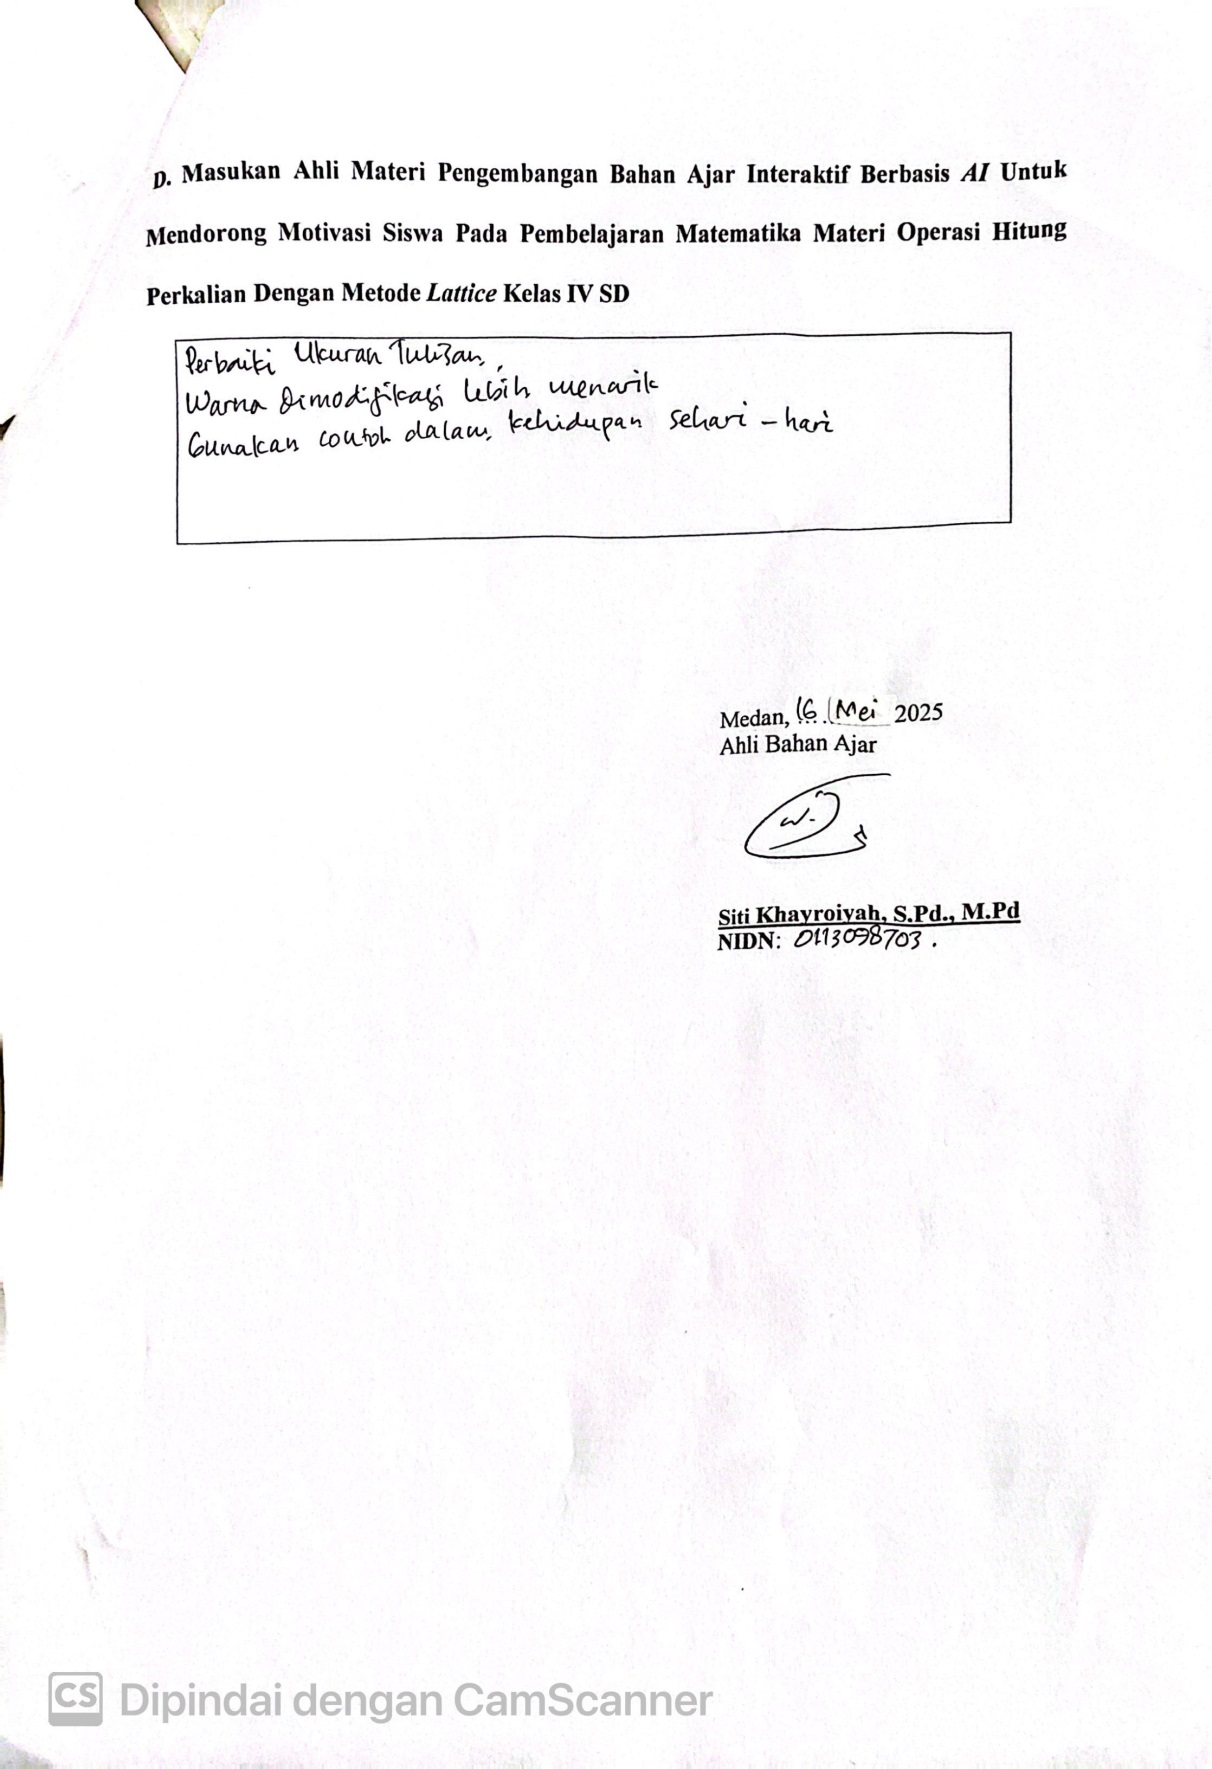 D. Masukan Ahli Materi Pengembangan Bahan Ajar Interaktif Berbasis AI Untuk
Mendorong Motivasi Siswa Pada Pembelajaran Matematika Materi Operasi Hitung
Perkalian Dengan Metode Lattice Kelas IV SD
Perbaiki Ukuran Tulisan,
Warna Dimodifikasi lebih menarik
Gunakan contoh dalam kehidupan sehari-hari
Medan, 16 Mei 2025
Ahli Bahan Ajar
Siti Khayroiyah, S.Pd., M.Pd
NIDN: 0113098703.
CS Dipindai dengan CamScanner